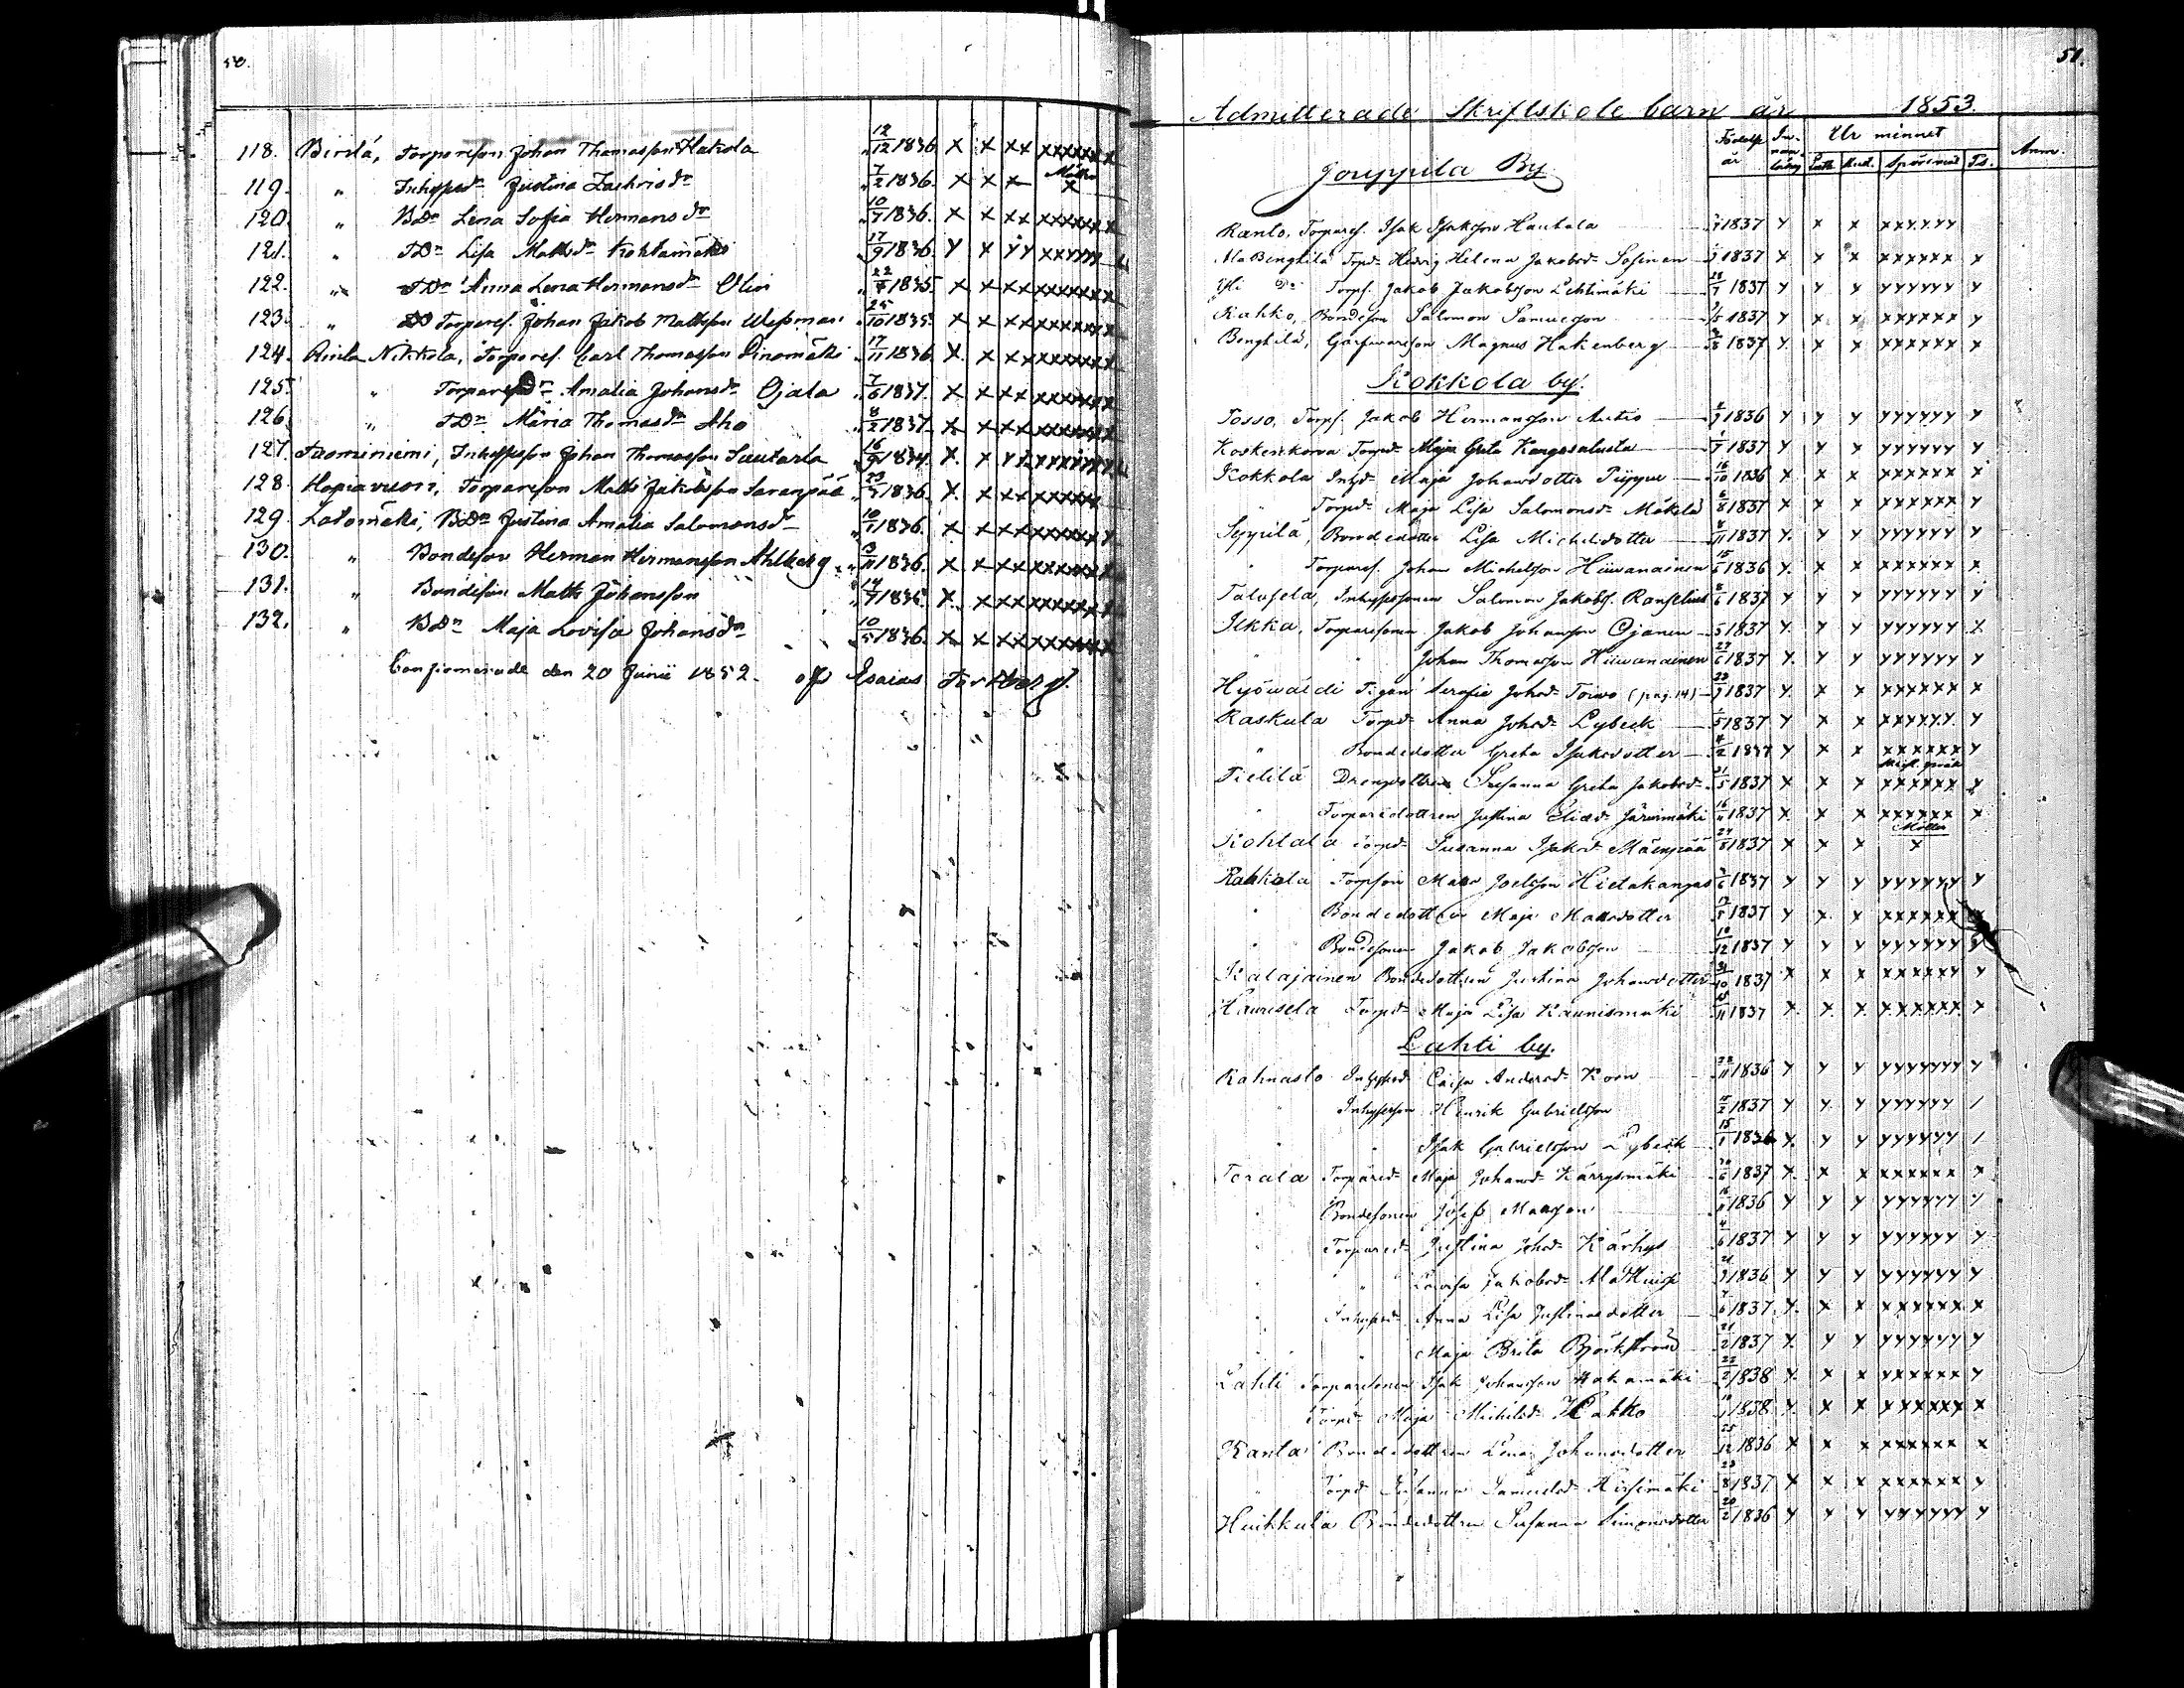 50.
118. Birilä, Torpareson Johan Thomasson Hakola 12/12 1836 x x xx xxxxxx
119. " Inhysesdr Justina Zachrisdr 7/2 1836. x x x
120. " BDr Lena Sofia Hermansdr 10/7 1836. x x xx xxxxxx
121. " TDr Lisa Mattsdr Kohtamäki 17/9 1836 y x yy xxyyyy
122. " TDr Anna Lena Hermansdr Olin 1835 x x xx xxxxxx
123. " Torpares. Johan Jakob Mattsson Wessman 25/10 1835 x x xx xxxxxx
124. Rinta Nikkola, Torpares. Carl Thomasson 17/11 1836 x x xx xxxxxx
125. " Dr Amalia Johansdr Ojala 7/6 1837. x x xx xxxxxx
126. " TDr Maria Thomasdr Aho 8/2 1837 x x xx xxxxxx
127. Johan Thomasson 16/9
128. Torpareson Matts Jakobsson Saranpää 1836. x x xx xxxxxx
129. Latomäki, BDr Justina Amalia Salomonsdr 10/1 1836. x x xx xxxxxx
130. " Bondeson Herman Hermansson Ahlberg 1836. x x xx xxxxxx
131. " Bondeson Matts Johansson 14/7 1836 x x xx xxxxxx
132. " BDr Maja Lovisa Johansdr 10/5 1836. x x xx xxxxxx
Confirmerade den 20 Junii 1852. af Esaias
51.
Admitterade Skriftskole barn år 1853.
Födelse år Innan läsng Ur minnet Anm.
Luth. Kat. Spörsmål
Jouppila By
Ranto, Torpares. Isak Isaksson Hautala 1837 y x x xxyyyy
Ala Benghilä Torpdr Hedvig Helena Jakobsdr 1837 x x x xxxxxx x
Yli Do Torps. Jakob Jakobsson Lehtimäki 1837 y y y yyyyyy y
Kahko, Bondeson Salomon Samuelsson 1837 y x x xxxxxx y
Benghilä, Magnus Hakenberg 1837 y x x xxxxxx x
Kokkola by.
Tosso, Torps. Jakob Hermansson Autio 1836 y y y yyyyyy y
Koskenkorva Torpdr Maja Greta Kangasaluta 1837 y y x yyyyyy y
Kokkola Inhdr Maja Johansdotter Piippu 16/10 1836 x x x xxxxxx x
" Torpdr Maja Lisa Salomonsdr Mäkelä 6/8 1837 x x x xxxxxx y
Seppilä, Bondedotter Lisa Michelsdotter 8/11 1837 y. y y yyyyyy y
" Torpares. Johan Michelsson Hiiwanainen 15/6 1836 y. x x xxxxxx x
Talosela, Inhysessonen Salomon Jakobs. Ranselius 8/6 1837 y y y yyyyyy y
Ilkka, Torparesonen Jakob Johansson Ojanen 1837 y. y y yyyyyy x
" " Johan Thomasson Hiiwanainen 27/6 1837 y. y y yyyyyy y
Hyöwäldi Serafia Johsdr Toiwo (pag. 14) 1837 y. x x xxxxxx x
Kaskula Torpdr Anna Johsdr Lybeck 1837 y x x xxxxxx y
" Bondedotter Greta Isaksdotter 1837 y x x xxxxxx y
Pietilä Drengdottren Susanna Greta Jakobsdr 21/5 1837 x x x xxxxxx x
" Torparedottren Justina Eliasdr Järvimäki 16/11 1837 x x x xxxxxx x
Kohtala Torpdr Susanna Isaksdr Mäenpää 24/8 1837 x x x x
Rahkola Torpson Matts Joelsson Hietakangas 1837 y y y yyyyyy y
" Bondedottren Maja Mattsdotter 1837 y x x xxxxxx
" Bondesonen Jakob Jakobsson 10/12 1837 y y y yyyyyy y
Kalajainen Bondedottren Justina Johansdotter 1837 x x x xxxxxy y
Haurisela Torpdr Maja Lisa Kaunismäki 1837 x x x xxxxxx x
Lahti by.
Kahnasto Inhysesd Caisa Andersdr 1836 y y y yyyyyyy y
" Inhysesson Henrik Gabrielsson 1837 y y y yyyyyy /
" " Isak Gabrielsson Lybeck 15/1 1836 y. y y yyyyyy /
Torala Torparedr Maja Johansdr Kärrysmäki 1837 y. x x xxxxxx x
" Bondesonen Josef Mattsson 1836 y y y yyyyyy y
" Torparedr Justina Johsdr Kärhys 4/6 1837 y y y yyyyyy y
" " Lovisa Jakobsdr 1836 y y y yyyyyy y
" Inhysesdr Anna Lisa Justinasdotter 1837 y. x x xxxxxx x
" " Maja Brita Björkström 21/2 1837 y. y y yyyyyy y
Lahti Torparesonen Isak Johansson Hakamäki 22/2 1838 y. x x xxxxxx y
" Torpdr Maja Michelsdr Hakko 1838 y. x x xxxxxx x
Kanta Bondedottren Lena Johansdotter 25/12 1836 x x x xxxxxx x
" Torpd Susanna Samuelsdr 23/8 1837 x x x xxxxxx y
Huikkula Bondedottren Susanna Simonsdotter 20/2 1836 y y y yyyyyyy y